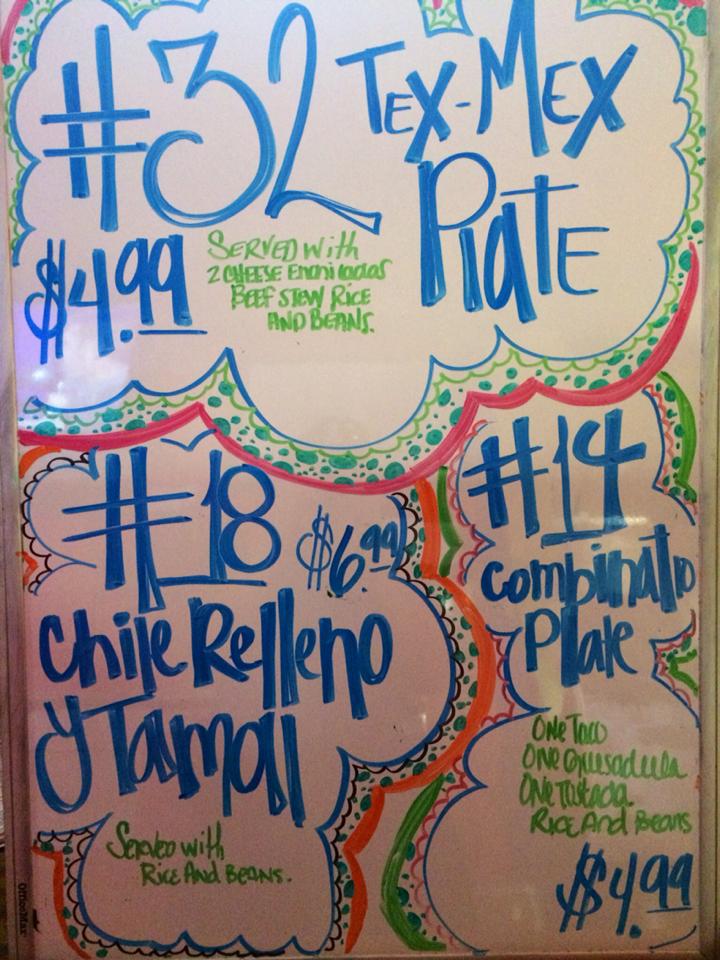 #32
Tex-Mex
Plate
$4.99
Served with
2 Cheese Enchiladas
Beef Stew Rice
And Beans.
#18
$6.99
Chile Relleno
y Tamal
Served with
Rice And Beans.
#14
Combinatio
Plate
One Taco
One Quesadilla
One Tostada
Rice And Beans
$4.99
OfficeMax